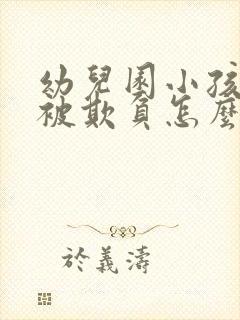 幼兒園小孩
被欺負怎麼
於義濤